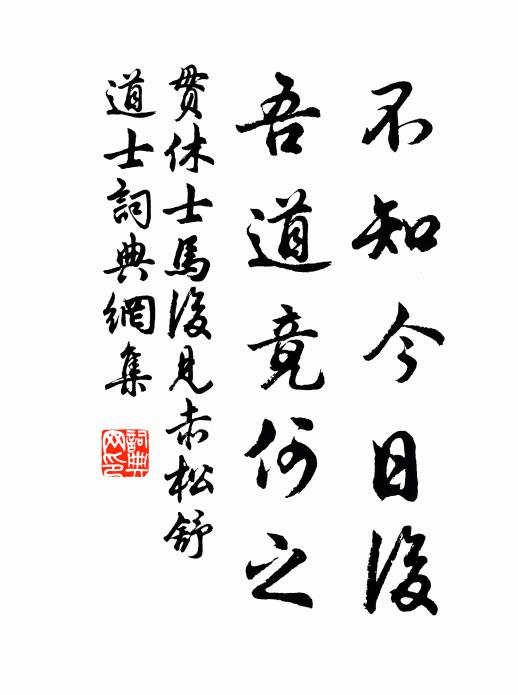 不知今日後
吾道竟何之
貫休士馬後見赤松舒
道士詞典網集
詞典網印